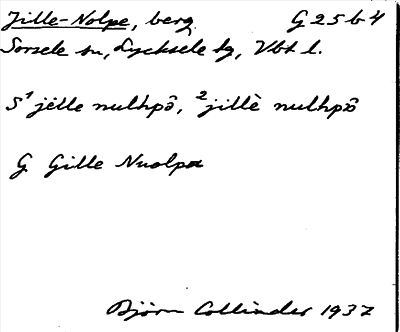 Jille-Nolpe, berg G 25 b 4
Sorsele sn, Lycksele lg, Vbt l.
S ¹jėlle nulhpȏ, ²jillè nulhpȏ
G Gille Nuolpa
Björn Collinder 1937